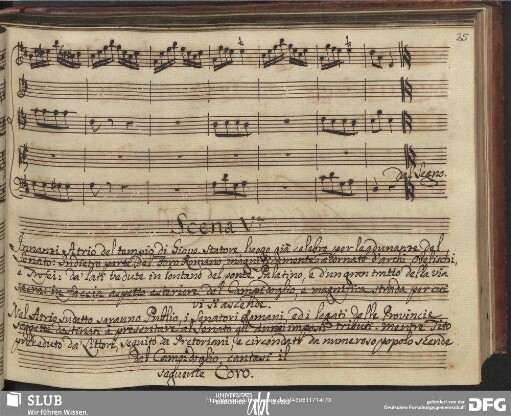 25
Dal Segno.
Scena V.ta
Innanzi Atrio del tempio di Giove Statore, luogo già celebre per le adunanze del
Senato: Indietro parte del Foro Romano, magnificamente adornato d'archi, obelischi,
e Trofei: da' lati veduta in lontano del monte Palatino, e d'un gran tratto della via
Sacra: in faccia aspetto esteriore del Campidoglio, e magnifica strada per cui
vi si ascende.
Nell'Atrio sudetto saranno Publio, i Senatori Romani, ed i legati delle Provincie
soggette destinati a presentare al Senato gli annui imposti tributi. Mentre Tito
preceduto da Littori, seguito da Pretoriani, e circondato da numeroso popolo scende
dal Campidoglio, cantasi il
seguente Coro.
SLUB
Wir führen Wissen.
gefördert von der
Deutschen Forschungsgemeinschaft
DFG